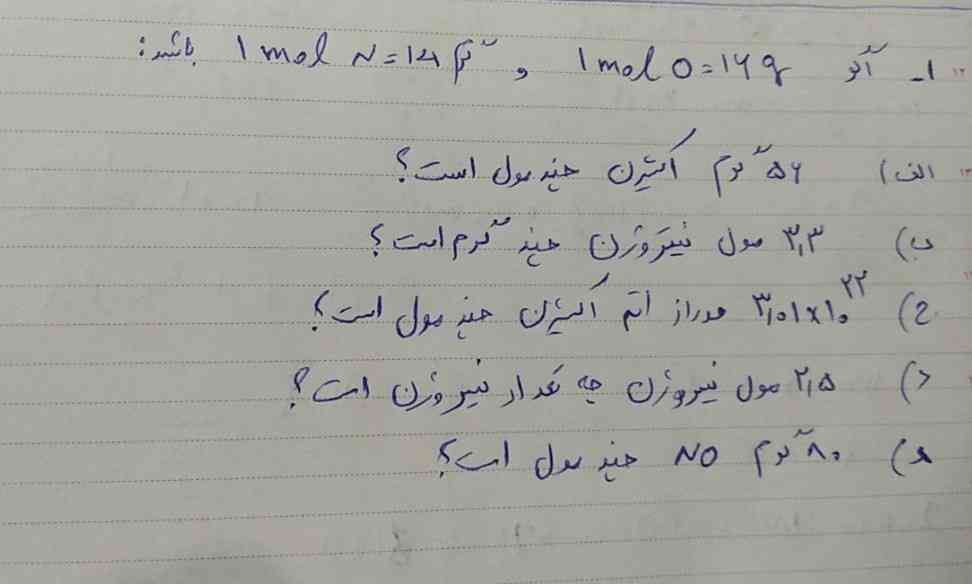 ۱- اگر 1 mol O = 16 g و 1 mol N = 14 گرم باشد:
الف) ۵۶ گرم اکسیژن چند مول است؟
ب) ۳,۳ مول نیتروژن چند گرم است؟
ج) ۳,۰۱×۱۰^۲۲ عدد از اتم اکسیژن چند مول است؟
د) ۲,۵ مول نیتروژن چه تعداد نیتروژن است؟
ه) ۸۰ گرم NO چند مول است؟